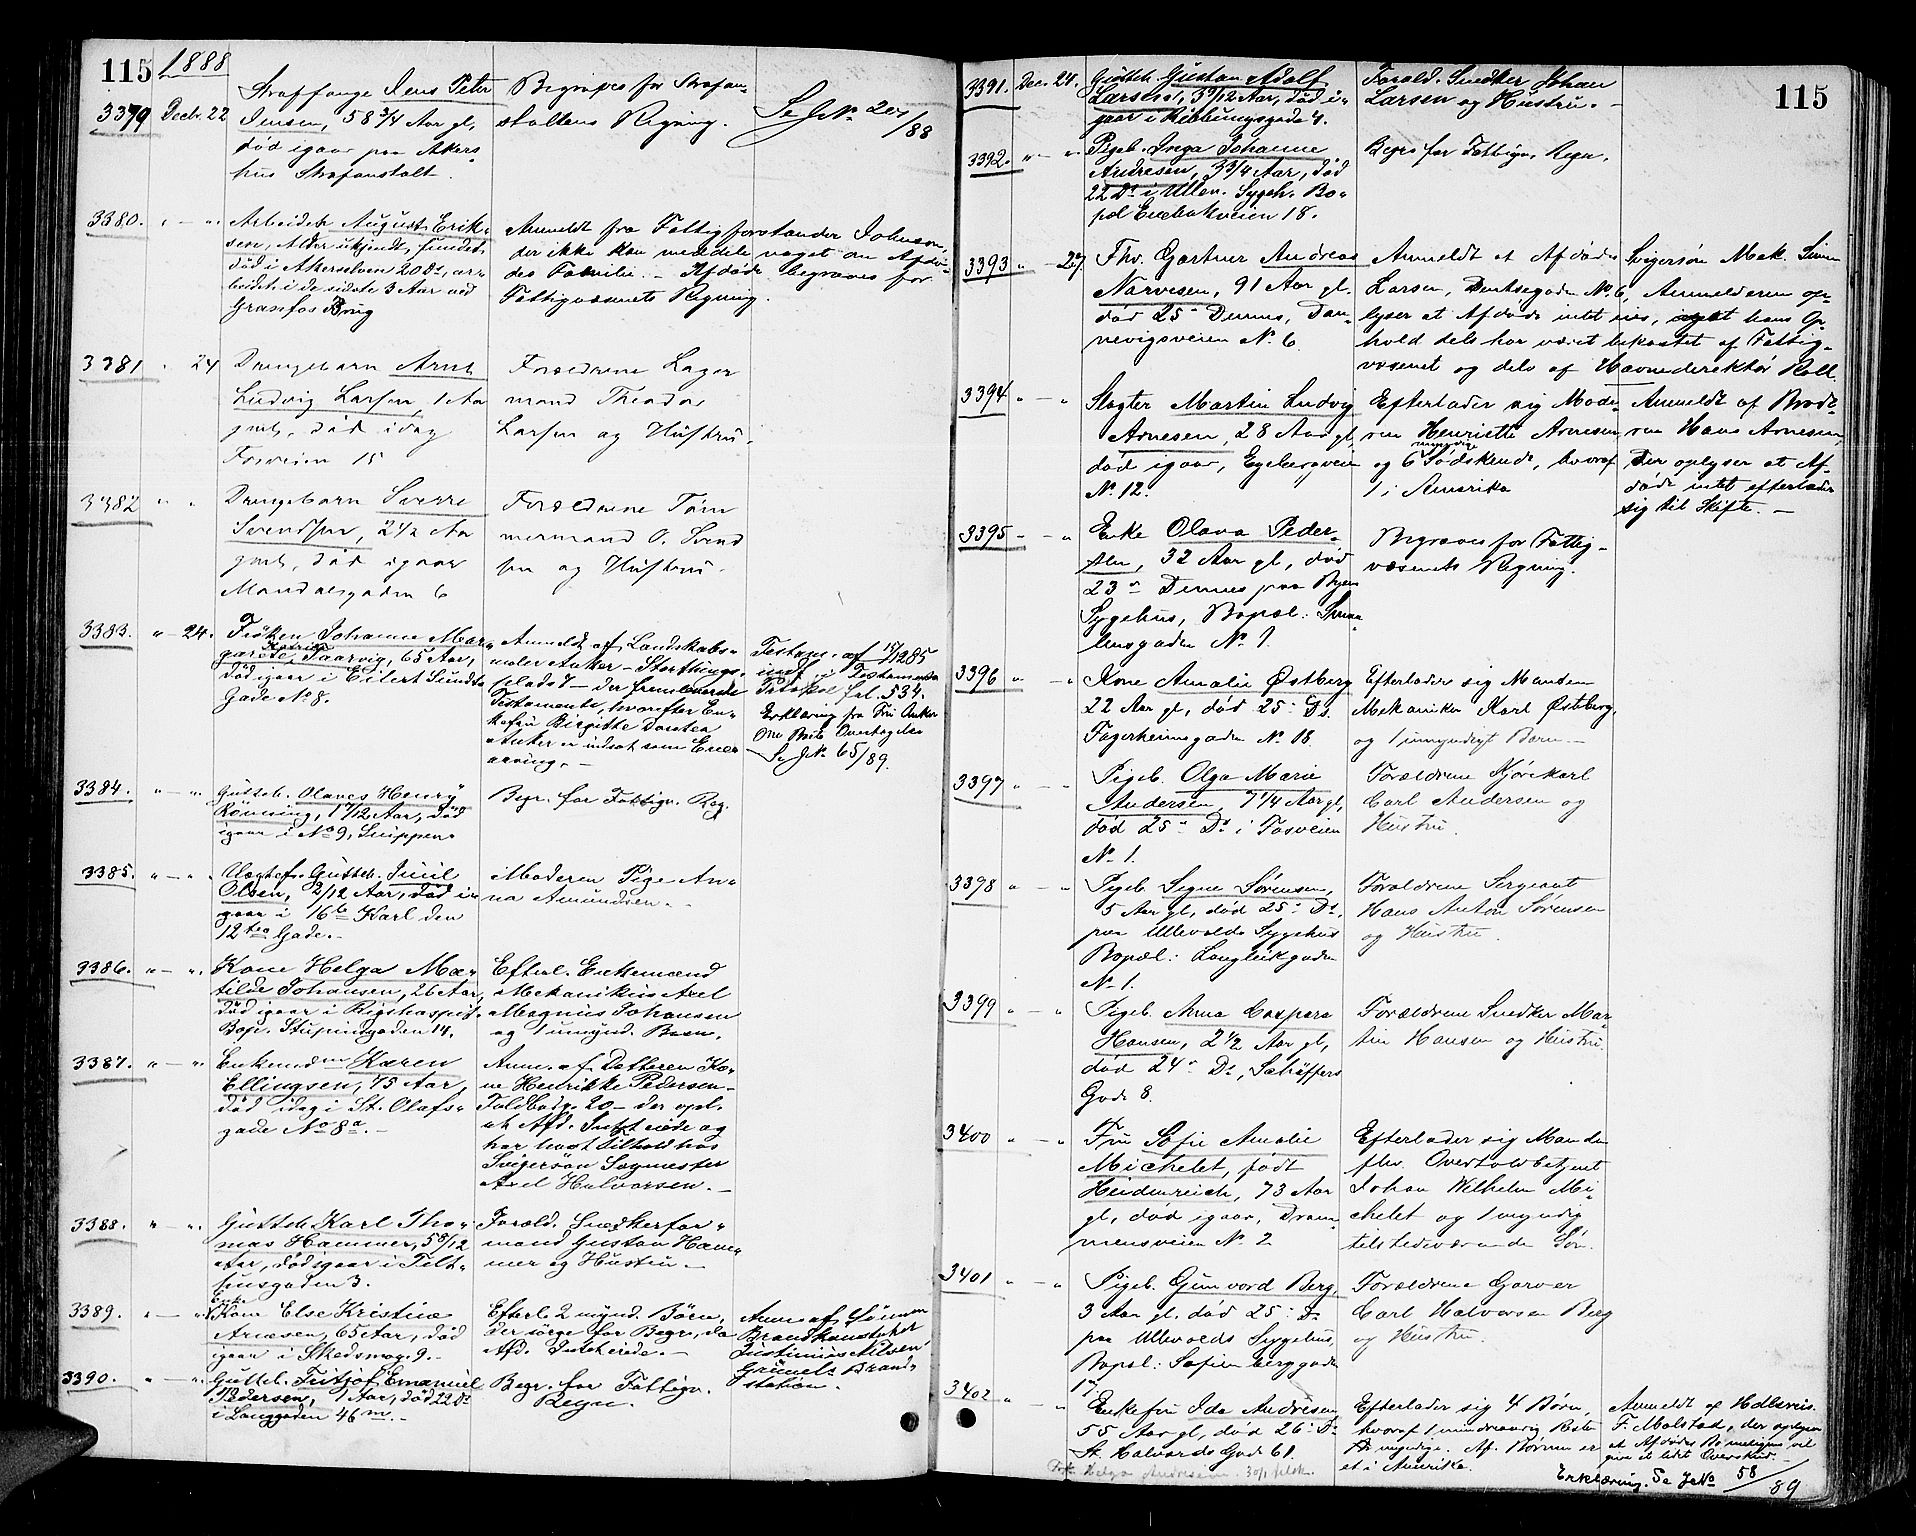 115 1888
3379 Decbr. 22 Straffange Jens Peter
Jensen, 58 3/4 Aar gl,
død igaar paa Akers-
hus Strafanstalt.
Begraves for Strafan-
staltens Regning.
Se J.No
/88
3380. " - " Arbeider August Erik-
sen, Alder ukjendt, fundet
død i Akerselven 20 Ds, ar-
beidet i de sidste 3 Aar ved
Granfos Brug
Anmeldt fra Fattigforstander Johnsen,
der ikke kan meddele noget om Afdø-
des Familie. - Afdøde begraves for
Fattigvæsenets Regning.
3381 " 24 Drengebarn Arne
Ludvig Larsen, 1 Aar
gml, død idag
Fosveien 15
Forældrene Lager
mand Theodor
Larsen og Hustru.
3382 " " Drengebarn Sverre
Svendsen, 2 1/2 Aar
gml, død igaar
Mandalsgaden 6
Forældrene Tøm
mermand O. Svend
sen og Hustru.
3383. " - 24. Frøken Johanne Mar-
garete Katrine Saarvig, 65 Aar,
død igaar i Eilert Sundts
Gade No 8.
Anmeldt af Landskabs-
maler Anker - Storthings-
plads 7 - der fremleverede
Testamente, hvorefter En-
kefru Birgitte Dorthea
Anker er indsat som Ene-
arving. -
Testam. af
indf. i Testaments
Protokol fol. 534.
Erklæring fra Fru Anker
om Boets Overtagelse
Se J.No 65/89.
3384. " - " Gutteb. Olaves Henry
Rønning, 1 7/12 Aar, død
igaar i No 9, Snippen.
Begr. for Fattigv. Reg.
3385. " - " Uægtef. Gutteb. Juul
Olsen, 2/12 Aar, død i-
gaar i 16b Karl den
12tes Gade. -
Moderen Pige An-
na Amundsen. -
3386. " - " Kone Helga Ma-
tilde Johansen, 26 Aar,
død igaar i Rigshospit.
Bop. Stupindgaden 14.
Efterl. Enkemand
Mekanikus Axel
Magnus Johansen
og 1 umynd. Barn.
3387. " - " Enkemadm Karen
Ellingsen, 75 Aar,
død idag i St. Olafs-
gade No 8a. -
Anm. af Datteren Ko-
ne Henrikke Pedersen -
Toldbodg. 20 - der opl.
at Afd. Intet eiede og
har havt Tilhold hos
Svigersøn Sagmester
Axel Halvorsen. -
3388. " - " Gutteb. Karl Tho-
mas Hammer, 5 8/12
Aar, død igaar i Telt-
husgaden 3.
Foræld. Snedkerfor-
mand Gustav Ham-
mer og Hustru. -
3389. " - " Enke
Kone Else Kristine
Arnesen, 65 Aar, død
igaar i Skedsmog. 9. -
Efterl. 2 mynd. Børn,
der sørge for Begr., da
Afd. Intet eiede. -
Anm. af Sønnen
Brandkonstabel
Justinius Nilsen
Grünerl. Brand-
station.
3390. " - " Gutteb. Fritjof Emanuel
Pedersen, 1 Aar, død 22 Ds
i Langgaden 46 m. -
Begr. for Fattigv.
Regn.
115
3391. Dec. 24. Gutteb. Gustav Adolf
Larsen, 3 9/12 Aar, død i-
gaar i Ribbungsgade 4.
Foræld. Snedker Johan
Larsen og Hustru. -
3392. " - " Pigeb. Inga Johanne
Andresen, 3 3/4 Aar, død
22 Ds i Ullev. Sygeh. Bo-
pæl Enebakveien 18.
Begrs for Fattigv. Regn.
3393 " - 27. Fhv. Gartner Andreas
Narvesen, 91 Aar gl.
død 25 Dennes, Dan-
nevigsveien No 6.
Anmeldt at Afdødes Svigersøn Mek. Simen
Larsen, Bentsegaden No 6, Anmelderen op-
lyser at Afdøde intet eies, hans Op-
hold dels har været bekostet af Fattig-
væsenet og dels af Havnedirektør Roll.
3394 " - " Slagter Martin Ludvig
Arnesen, 28 Aar gl,
død igaar, Egebergveien
No 12.
Efterlader sig Mode-
ren Henriette Arnesen
og 6 myndige Sødskende, hvoraf
1 i Amerika
Anmeldt af Brode-
ren Hans Arnesen,
Der oplyser at Af-
døde intet efterlader
sig til Skifte. -
3395 " - " Enke Olava Peder-
sen, 32 Aar gl, død
23 Dennes paa Byens
Sygehus, Bopæl: Smaa-
lensgaden No 7.
Begraves for Fattig-
væsenets Regning.
3396 " - " Kone Amalie Østberg
22 Aar gl, død 25 Ds.
Fagerheimsgaden No 18.
Efterlader sig Manden
Mekaniker Karl Østberg,
og 1 umyndigt Barn. -
3397 " - " Pigeb. Olga Marie
Andersen, 7 1/4 Aar gl,
død 25 Ds i Fosveien
No 1.
Forældrene Kjørekarl
Carl Andersen og
Hustru.
3398 " - " Pigeb. Signe Sørensen,
5 Aar gl, død 25 Ds.
paa Ullevolds Sygehus
Bopæl: Langleikgaden
No 1.
Forældrene Sergeant
Hans Anton Sørensen
og Hustru.
3399 " - " Pigeb. Anna Caspara
Hansen, 2 1/2 Aar gl,
død 24 Ds, Schøffers
Gade 8.
Forældrene Snedker Mar-
tin Hansen og Hustru.
3400 " - " Fru Sofie Amalie
Michelet, født
Heidenreich, 73 Aar
gl, død igaar, Dram-
mensveien No 2
Efterlader sig Manden
fhv. Overtoldbetjent
Johan Wilhelm Mi-
chelet og 1 myndig
tilstedeværende Søn.
3401 " - " Pigeb. Gunvord Berg,
3 Aar gl, død 25 Ds
paa Ullevolds Sygehus,
Bopæl: Sofienberggade
17.
Forældrene Garver
Carl Halvorsen Berg
og Hustru.
3402 " - " Enkefru Ida Andresen,
55 Aar gl, død 26 Ds
St. Halvards Gade 61.
Efterlader sig 4 Børn,
hvoraf 1 mindreaarig Resten
myndige. Af Børnene er
et i Amerika.
Anmeldt af
F. Malstad, der oplyser
at Afdødes Bo muligens vil
give et lidet Overskud. -
Helga Andresen
Erklæring. Se J.No 58/89